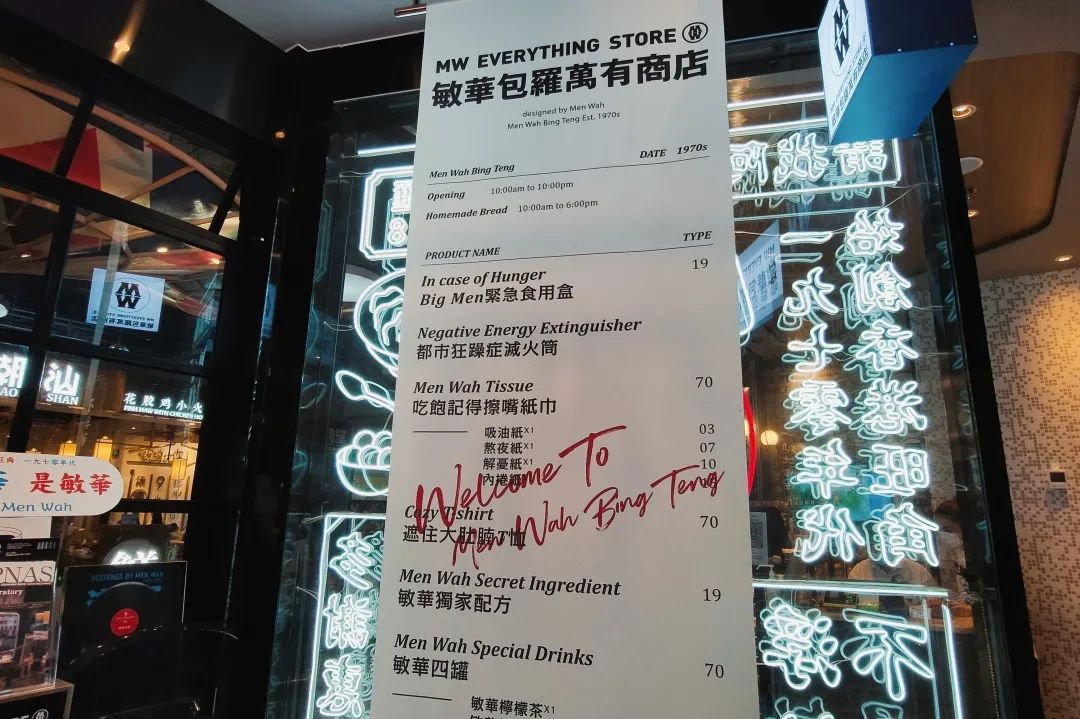 MW EVERYTHING STORE MW
敏華包羅萬有商店
designed by Men Wah
Men Wah Bing Teng Est. 1970s
DATE 1970s
Men Wah Bing Teng
Opening 10:00am to 10:00pm
Homemade Bread 10:00am to 6:00pm
PRODUCT NAME TYPE
In case of Hunger 19
Big Men緊急食用盒
Negative Energy Extinguisher
都市狂躁症滅火筒
Men Wah Tissue 70
吃飽記得擦嘴紙巾
吸油紙X1 03
熬夜紙X1 07
解憂紙X1 10
內捲紙
Welcome To
Men Wah Bing Teng
Cozy T-shirt 70
遮住大肚腩T恤
Men Wah Secret Ingredient 19
敏華獨家配方
Men Wah Special Drinks 70
敏華四罐
敏華檸檬茶X1
MW
始創香港旺角
一九七零年代
不
多謝惠
MW
汕
SHAN
花胶鸡小火
FISH MAW WITH CHICKEN HO
一九七零年代
是敏華
Men Wah
DESIGNED BY MEN WAH